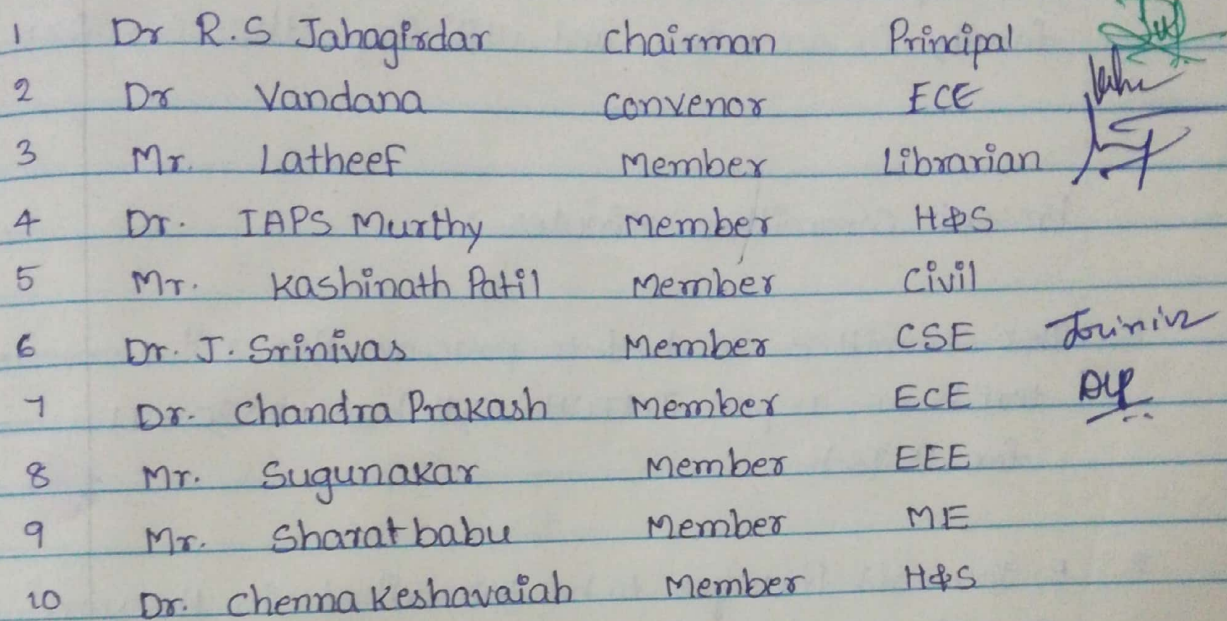 1 Dr R.S Jahagirdar Chairman Principal
2 Dr Vandana Convenor ECE
3 Mr. Latheef Member Librarian
4 Dr. IAPS Murthy Member H&S
5 Mr. Kashinath Patil Member Civil
6 Dr. J. Srinivas Member CSE
7 Dr. Chandra Prakash Member ECE
8 Mr. Sugunakar Member EEE
9 Mr. Sharat babu Member ME
10 Dr. Chenna Keshavaiah Member H&S